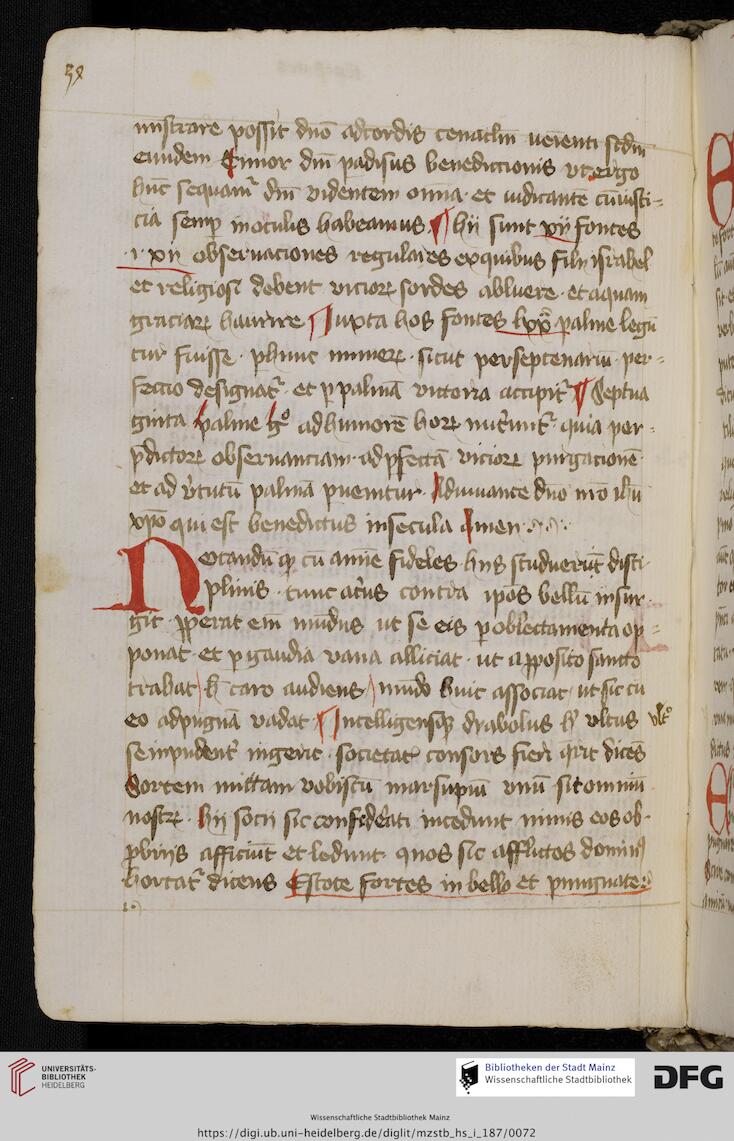 58
nistrare possit dno ad cordis cenaclm uenienti scdm
eiusdem Timor dni padisus benedictionis vt ergo
hunc sequamr dm videntem omia et iudicante cu iusti=
cia semp in oculis habeamus ¶ hii sunt xii fontes
.i. xii obseruaciones regulares ex quibus filii israhel
et religiosi debent vicioru sordes abluere et aquam
graciaru haurire ¶ Iuxta hos fontes lxx palme legu
tur fuisse p hunc numeru sicut per septenariu per=
fectio designatr et p palma victoria accipitr ¶ Septua
ginta palme go ad humore horu nutriuntr quia per=
pdictoru obseruanciam ad pfecta vicioru purgacione
et ad vtutu palma peruenitur Adiuuante dno nro ihu
xpo qui est benedictus in secula Amen
Notandu qp cu anime fideles hiis studuerut disci
plinis tunc acrius contra ipos bellu insur
git pperat em mundus ut se eis p oblectamenta op=
ponat et p gaudia vana alliciat ut a pposito sancto
trahat h caro audiens mudo huic associat ut sic cu
eo ad pugna vadat ¶ Intelligensqp dyabolus h vltus vlto
se inpudentr ingerit societat consors fieri qrit dices
Sortem mittam vobiscu marsupiu vnu sit omniu
nostru hii socii sic confederati incedunt nimis eos ob=
pbriis afficiut et ledunt quos sic afflictos dominus
hortatr dicens Estote fortes in bello et pungnate
UNIVERSITÄTS-
BIBLIOTHEK
HEIDELBERG
Bibliotheken der Stadt Mainz
Wissenschaftliche Stadtbibliothek
DFG
Wissenschaftliche Stadtbibliothek Mainz
https://digi.ub.uni-heidelberg.de/diglit/mzstb_hs_i_187/0072